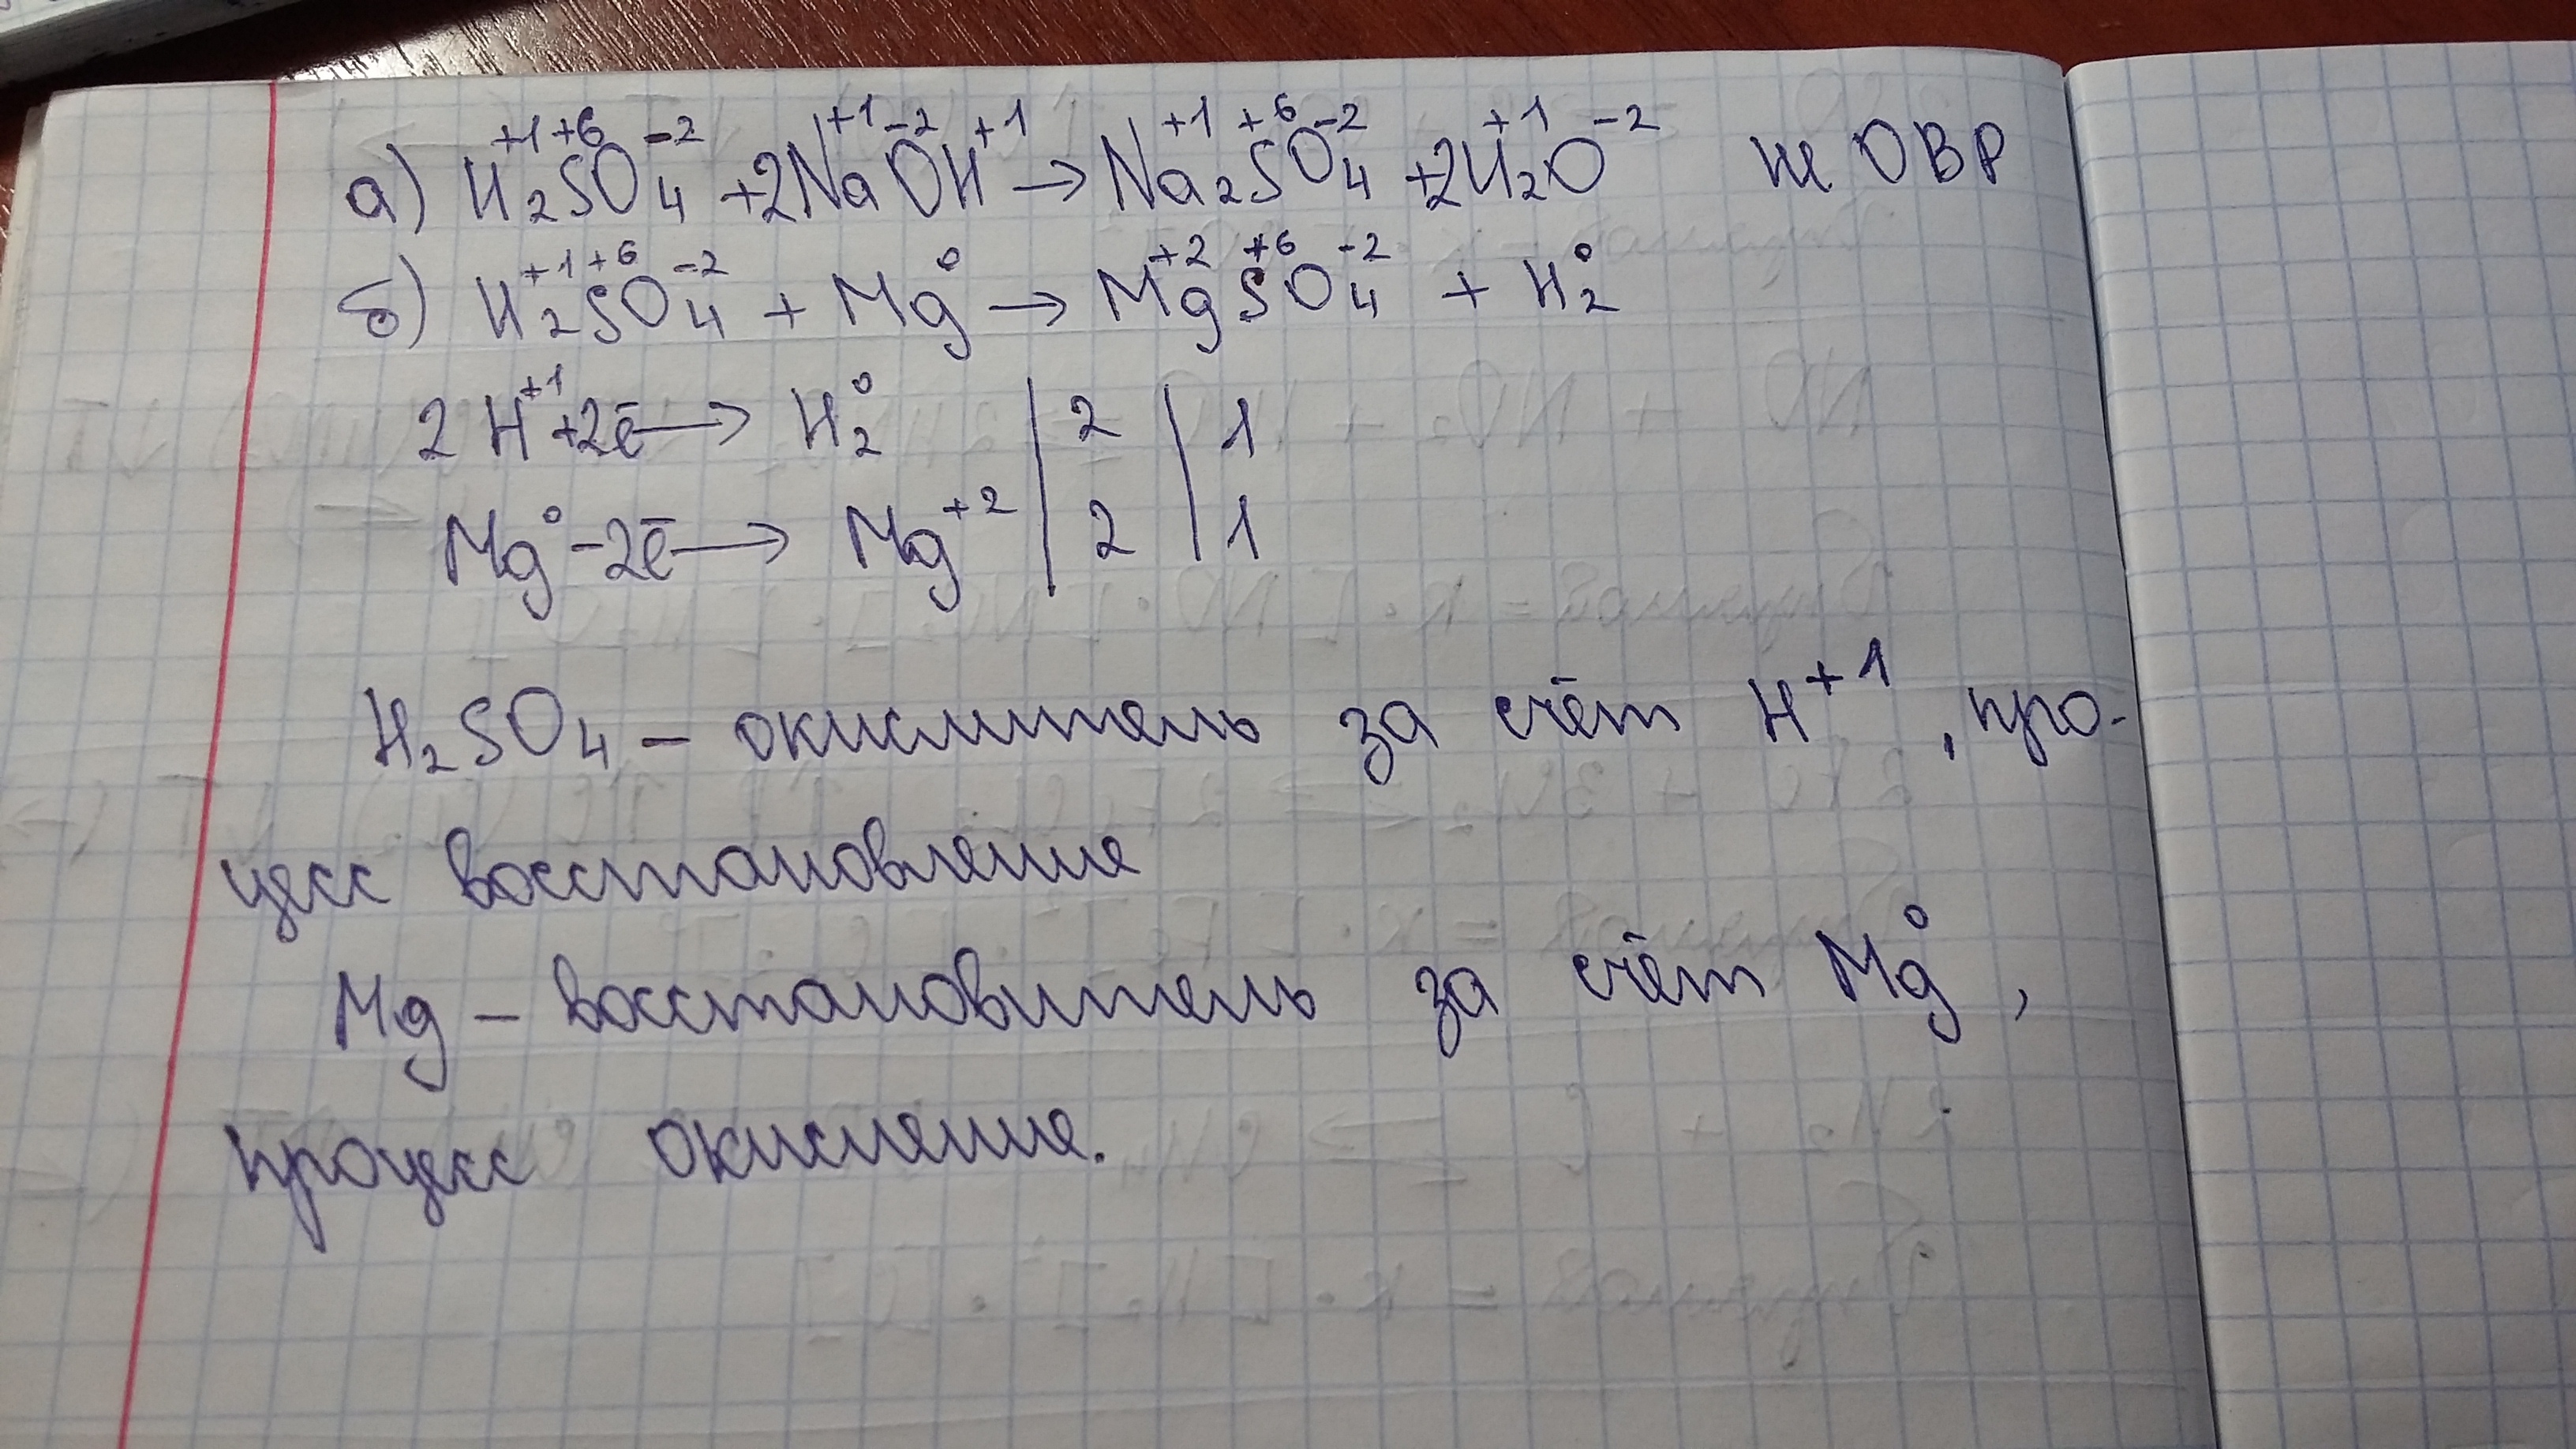 а) H₂⁺¹S⁺⁶O₄⁻² + 2Na⁺¹O⁻²H⁺¹ → Na₂⁺¹S⁺⁶O₄⁻² + 2H₂⁺¹O⁻² не ОВР
б) H₂⁺¹S⁺⁶O₄⁻² + Mg⁰ → Mg⁺²S⁺⁶O₄⁻² + H₂⁰
2H⁺¹ + 2ē → H₂⁰ | 2 | 1
Mg⁰ - 2ē → Mg⁺² | 2 | 1
H₂SO₄ – окислитель за счёт H⁺¹, про-
цесс восстановление
Mg – восстановитель за счёт Mg⁰,
процесс окисление.